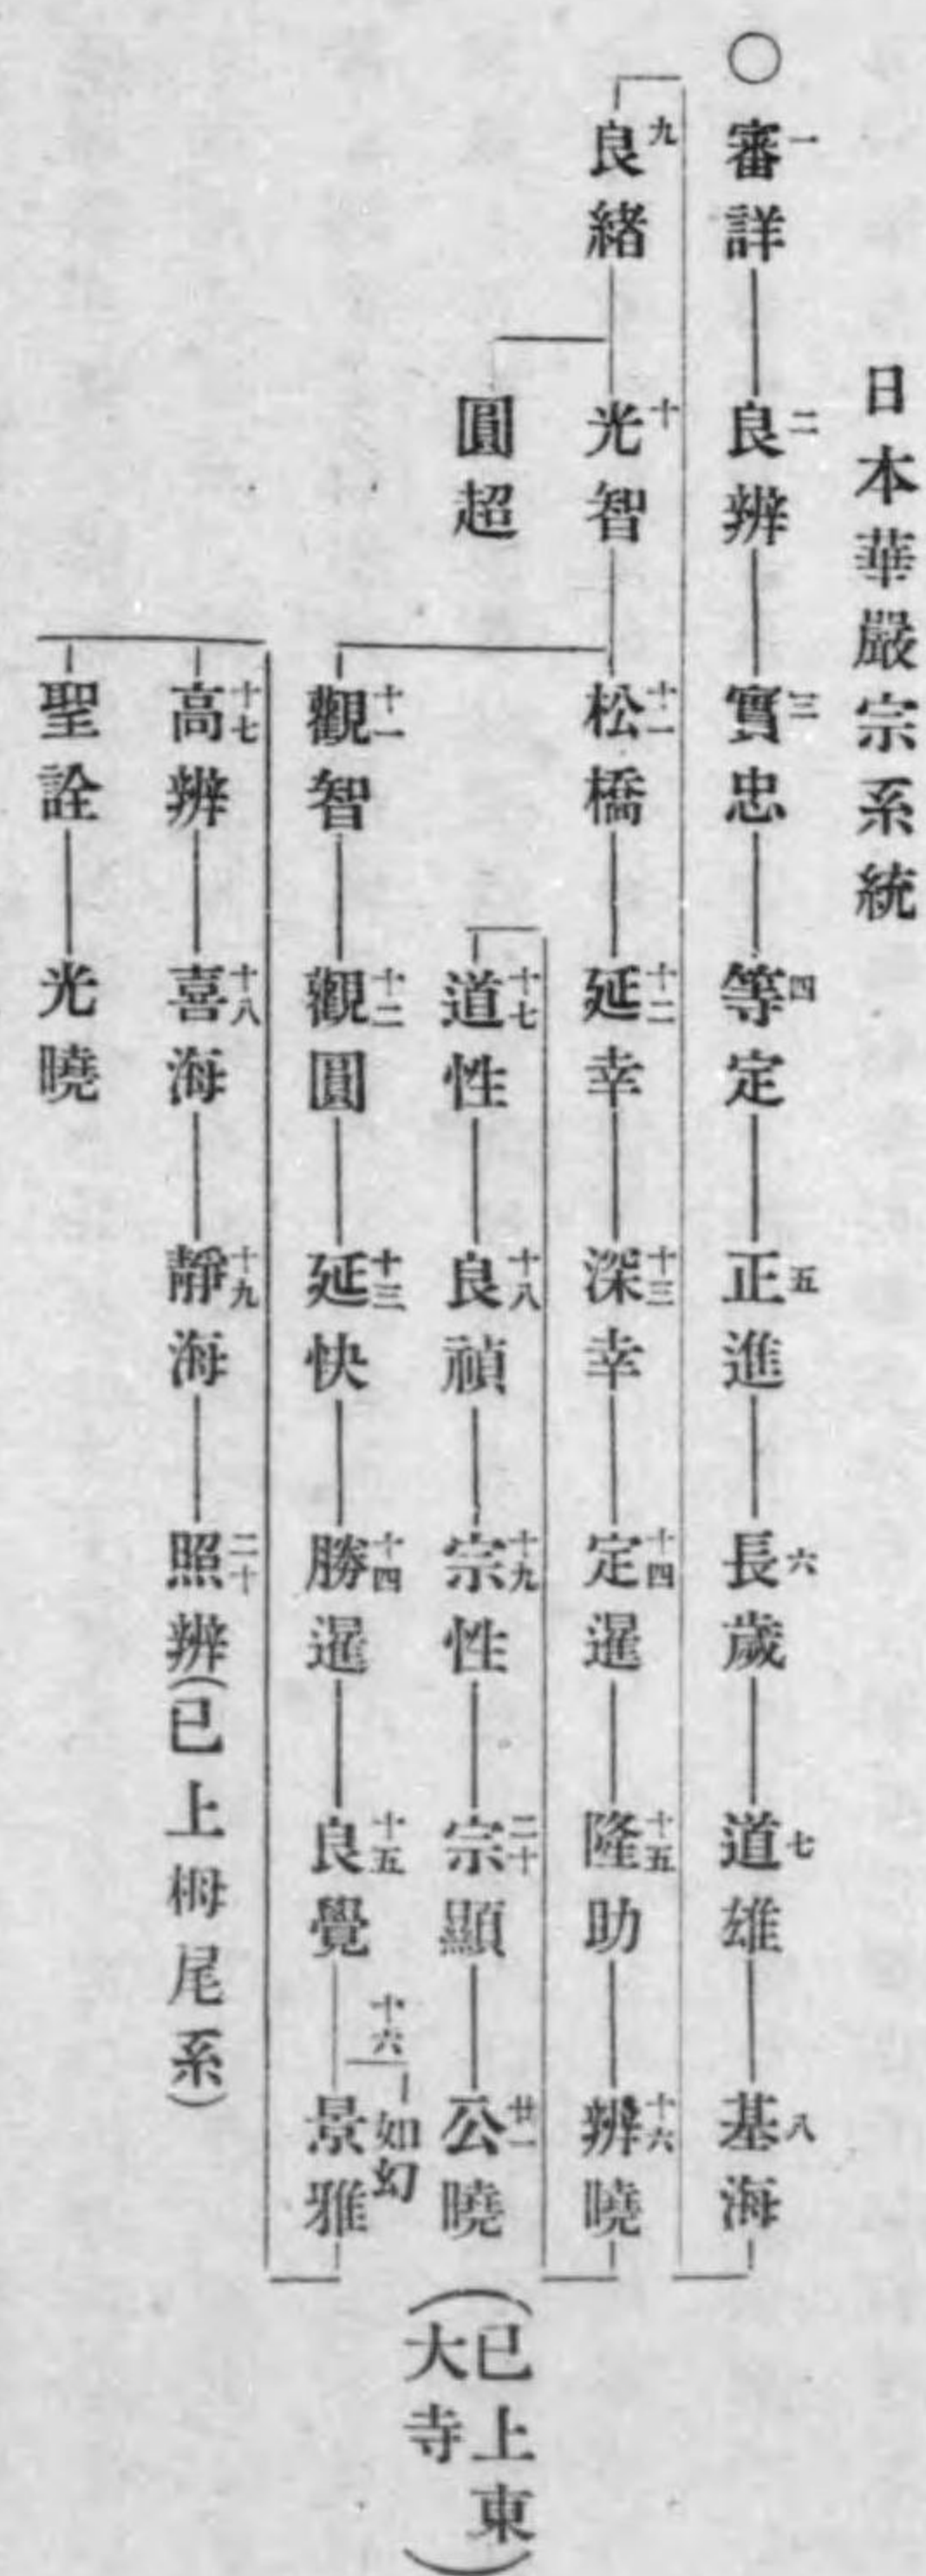 日本華嚴宗系統
○審詳一 良辨二 實忠三 等定四 正進五 長歲六 道雄七 基海八
良緒九 光智十 松橋十一 延幸十二 深幸十三 定暹十四 隆助十五 辨曉十六
圓超 道性十七 良禎十八 宗性十九 宗顯二十 公曉廿一 (已上東大寺)
觀智十一 觀圓十二 延快十三 勝暹十四 良覺十五 十六 如幻 景雅
高辨十七 喜海十八 靜海十九 照辨二十(已上栂尾系)
聖詮 光曉